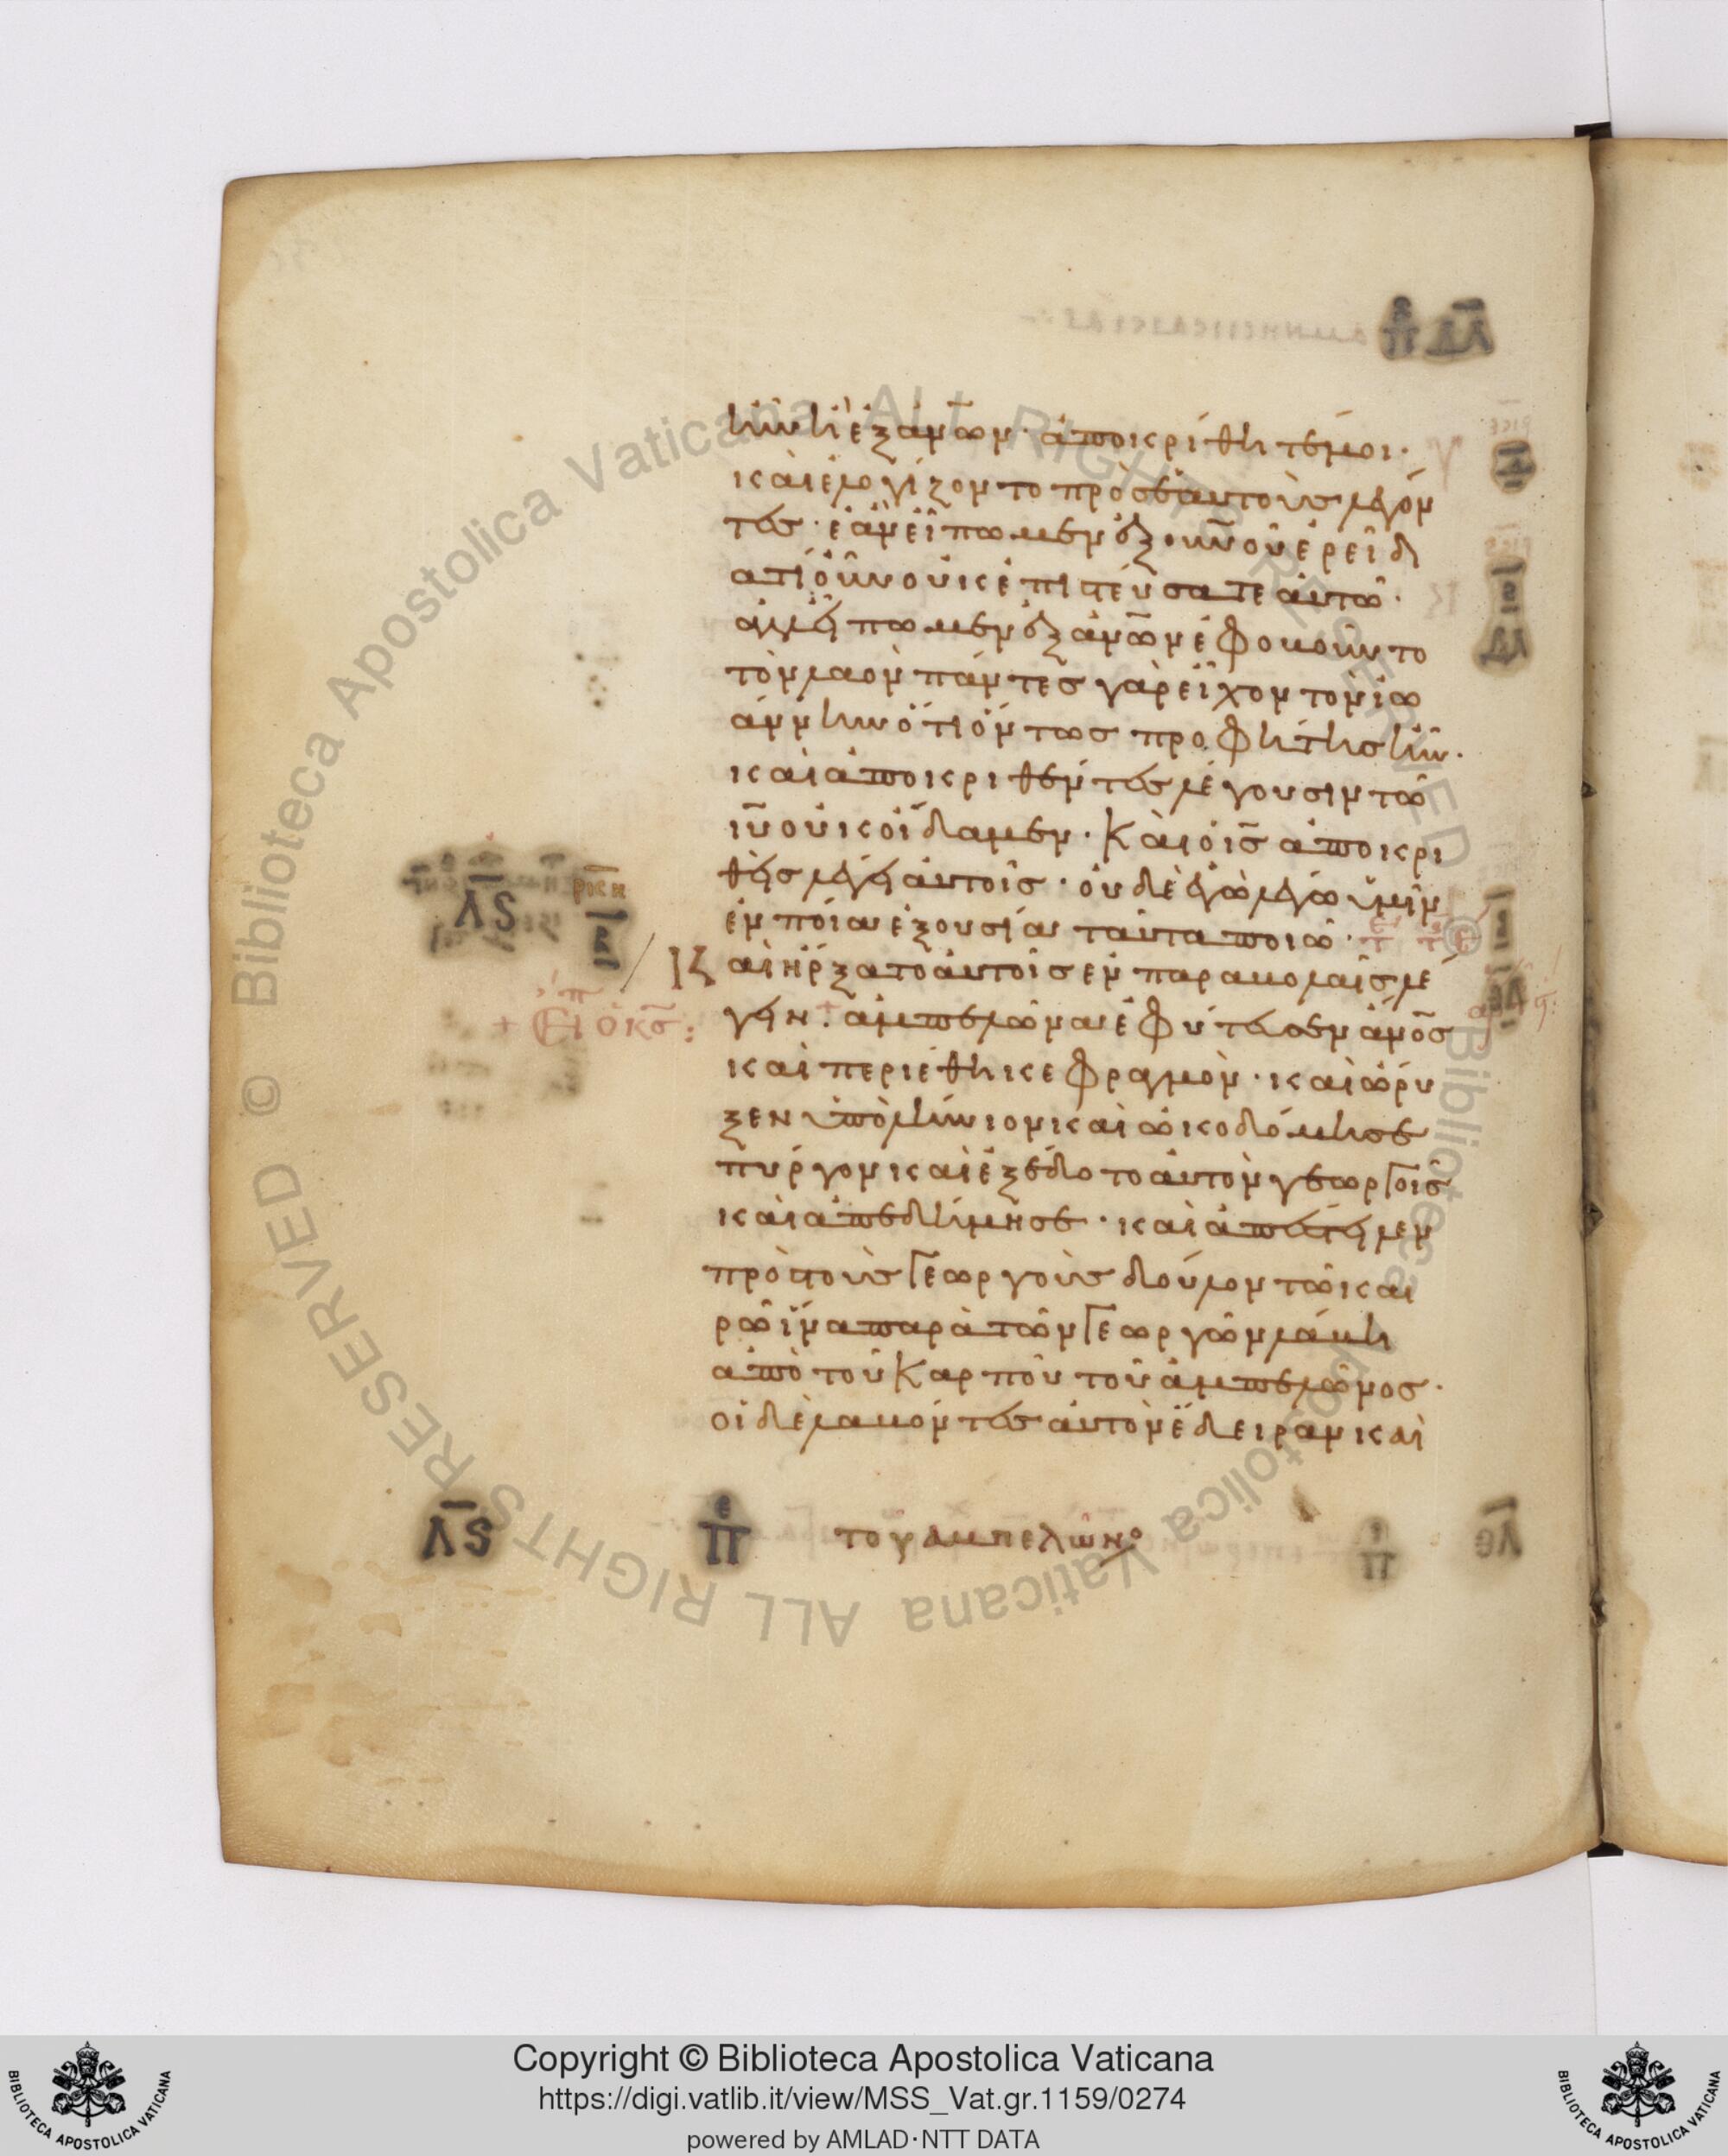 ἦν ἢ ἐξ ἀν̅ων· ἀποκρίθητέ μοι·
καὶ ἐλογίζοντο πρὸς ἑαυτοὺς λέγον
τες· ἐὰν εἴπωμεν ἐξ οὐν̅ου ἐρεῖ δι
ατί οὖν οὐκ ἐπιστεύσατε αὐτῶ·
ἀλλ εἴπωμεν ἐξ ἀν̅ων ἐφοβοῦντο
τὸν λαὸν πάντες γὰρ εἶχον τὸν ἰω
άννην ὅτι ὄντως προφήτης ἦν·
καὶ ἀποκριθέντες λέγουσιν τῶ
ιυ̅ οὐκ οἴδαμεν· Καὶ ὁ ις̅ ἀποκρι
θεὶς λέγει αὐτοῖς· οὐδὲ ἐγὼ λέγω ὑμῖν
ἐν ποία ἐξουσία ταῦτα ποιῶ·
Κ αὶ ἤρξατο αὐτοῖς ἐν παραβολαῖς λέ
γειν· ἀμπελῶνα ἐφύτευσεν ἀν̅ος
καὶ περιέθηκε φραγμὸν· καὶ ὤρυ
ξεν ὑπολήνιον καὶ ὠκοδόμησε
πύργον καὶ ἐξέδοτο αὐτὸν γεωργοῖς
καὶ ἀπεδήμησε· καὶ ἀπέστειλεν
πρὸς τοὺς γεωργοὺς δοῦλον τῶ και
ρῶ ἵνα παρὰ τῶν γεωργῶν λάβη
ἀπὸ τοῦ καρποῦ τοῦ ἀμπελῶνος·
οἱ δὲ λαβόντες αὐτὸν ἔδειραν καὶ
Λ̅Ϛ
ρκη
Λ̅Ϛ πε του αμπελῶνο
Copyright © Biblioteca Apostolica Vaticana
https://digi.vatlib.it/view/MSS_Vat.gr.1159/0274
powered by AMLAD·NTT DATA
BIBLIOTECA APOSTOLICA VATICANA
BIBLIOTECA APOSTOLICA VATICANA
© Biblioteca Apostolica Vaticana ALL RIGHTS RESERVED
© Biblioteca Apostolica Vaticana ALL RIGHTS RESERVED